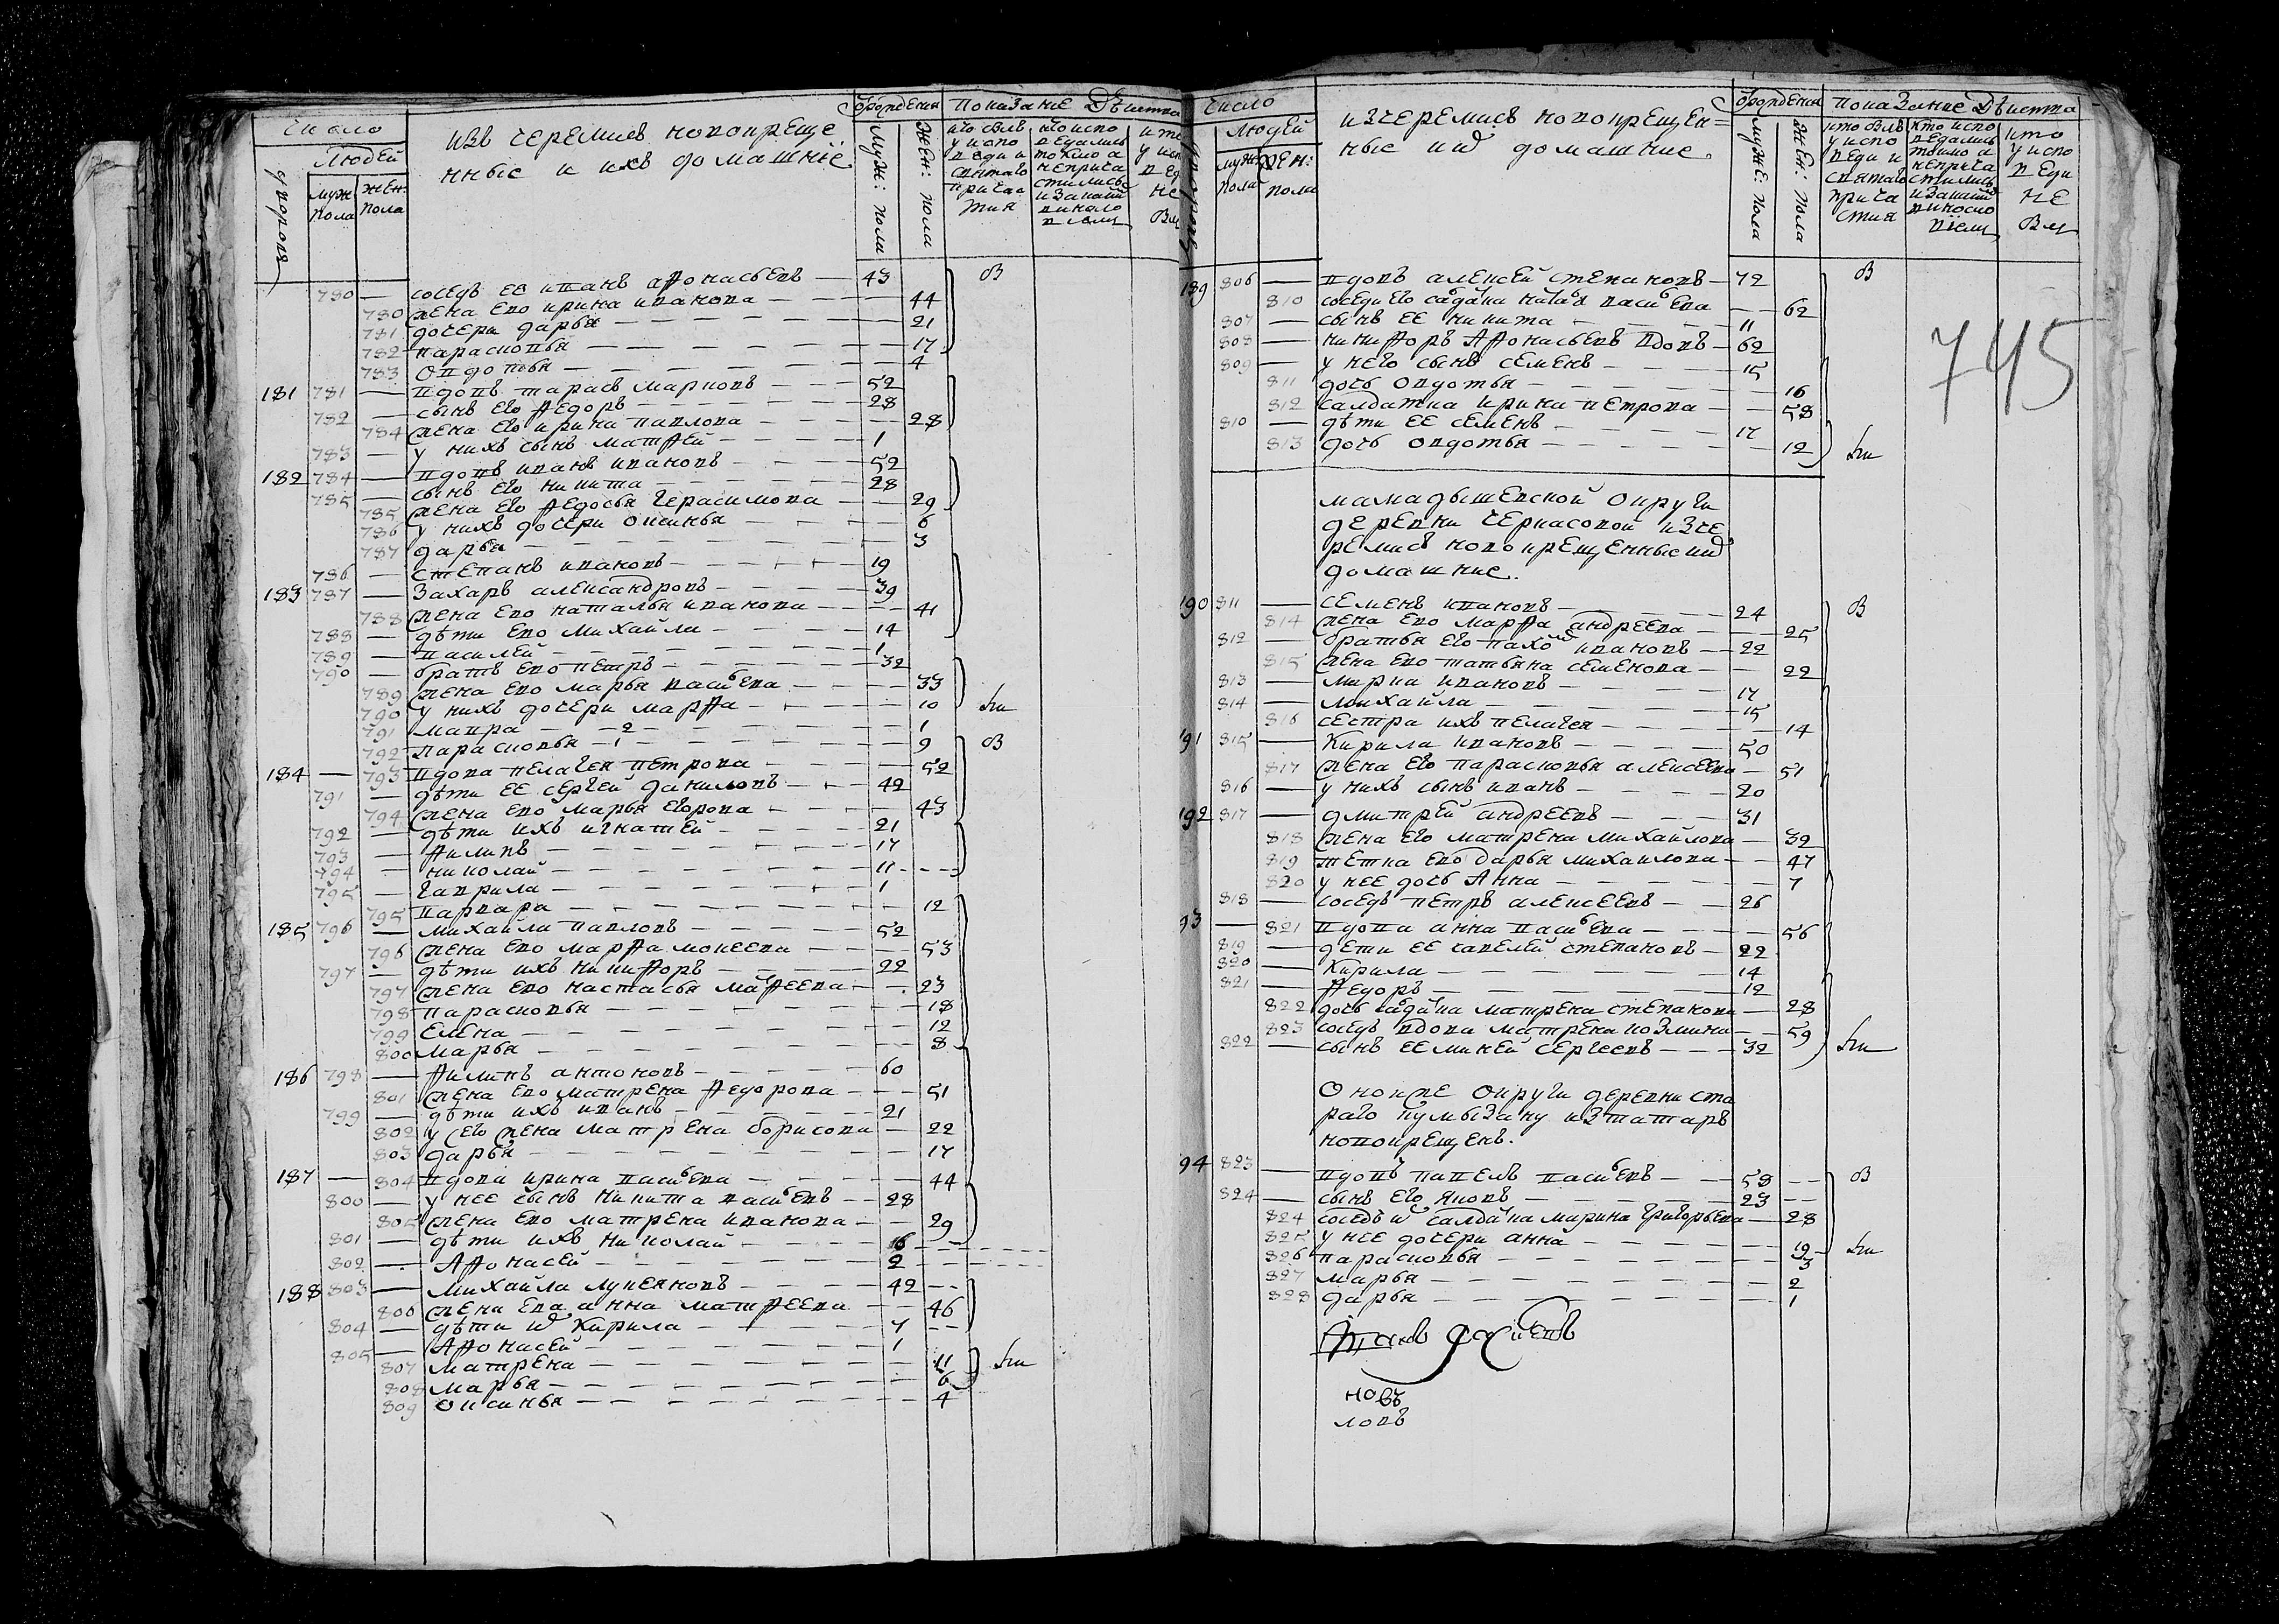 Число
Людей
дворовъ
муж: пола
жен: пола
изъ черемисъ новокреще
нные и ихъ домашнїе
от рожденія
муж: пола
жен: пола
Показание Дѣйства
кто былъ у исповеди и святаго причастия
кто исповедались токмо а не причастились и за какими винословіемъ
780 — соседъ ее иванъ афонасьевъ — 43 В
780 жена ево ирина иванова — 44
781 дочери дарья — 21
782 парасковья — 17
783 овдотья — 4
181 781 — вдовъ тарасъ марковъ — 52
782 — сынъ его федоръ — 28
784 жена его ирина павлова — 28
783 — у нихъ сынъ матфей — 1
182 784 — вдовъ иванъ ивановъ — 52
785 — сынъ его никита — 28
785 жена его федосья герасимова — 29
786 у нихъ дочери оксинья — 6
787 дарья — 3
786 — степанъ ивановъ — 19
183 787 — захаръ александровъ — 39
788 жена ево наталья иванова — 41
788 — дѣти ево михайла — 14
789 — василей — 1
790 — братъ ево петръ — 32
789 жена ево марья васильева — 33
790 у нихъ дочери марфа — 10
791 мавра — 2 — 1
792 парасковья — 1 — 9 В
184 — 793 вдова пелагея петрова — 52
791 — дѣти ее сергей даниловъ — 42
794 жена ево марья егорова — 43
792 — дѣти ихъ игнатей — 21
793 — филипъ — 17
794 — николай — 11
795 — гаврила — 1
795 варвара — 12
185 796 — михайла павловъ — 52
796 жена ево марфа мокеева — 53
797 — дѣти ихъ никифоръ — 22
797 жена ево настасья мафеева — 23
798 парасковья — 18
799 елена — 12
800 марья — 8
186 798 — филипъ антоновъ — 60
801 жена ево матрена федорова — 51
799 — дѣти ихъ иванъ — 21
802 у сего жена матрена борисова — 22
803 дарья — 17
187 — 804 вдова ирина васильева — 44
800 — у нее сынъ никита васильевъ — 28
805 жена ево матрена иванова — 29
801 — дѣти ихъ николай — 6
802 — афонасей — 2
188 803 — михайла лукеяновъ — 42
806 жена ева анна матфеева — 46
804 — дѣти их кирила — 7
805 — афонасей — 1
807 матрена — 11
808 марья — 6
809 оксинья — 4
Число
Людей
дворовъ
муж: пола
жен: пола
изчеремисъ новокрещен=
ные их домашние.
от рожденія
муже: пола
жен: пола
Показание Дѣйства
кто былъ у исповеди и святаго причастия
кто исповедались токмо и непричастились и за какимъ винословіемъ
кто у исповеди не был
745
189 806 — вдовъ алексей степановъ — 72 В
810 соседи его салдатка васильева — 62
807 — сынъ ее никита — 11
808 — никифоръ афонасьевъ вдовъ — 62
809 — у него сынъ семенъ — 15
811 дочь овдотья — 16
812 салдатка ирина петрова — 58
810 — дѣти ее семенъ — 17
813 дочь овдотья — 12
мамадышевской округи
деревни черкасовой изче
ремисъ новокрещенные их
домашние.
190 811 — семенъ ивановъ — 24 В
814 жена ево марфа андреева — 25
812 — братья его пахом ивановъ — 22
815 жена ево татьяна семенова — 22
813 — мирка ивановъ — 17
814 — михайла — 15
816 сестра ихъ пелагея — 14
191 815 — кирила ивановъ — 50
817 жена его парасковья алексеева — 51
816 — у нихъ сынъ иванъ — 20
192 817 — дмитрей андреевъ — 31
818 жена его матрена михайлова — 32
819 тетка ево дарья михаилова — 47
820 у нее дочь анна — 7
818 — соседъ петръ алексеевъ — 26
93 — 821 вдова анна васильева — 56
819 — дети ее савелей степановъ — 22
820 — кирила — 14
821 — федоръ — 12
822 дочь салдатка матрена степанова — 28
823 соседъ вдова матрена козмина — 59
822 — сынъ ее михей сергеевъ — 32
О ноцке округи деревни ста
раго кумызану изтатаръ
новокрещенъ.
94 823 — вдовъ павелъ васильевъ — 58 В
824 — сынъ его яковъ — 23
824 соседъ их салдатка марина григорьева — 28
825 у нее дочери анна — 19
826 парасковья — 3
827 марья — 2
828 дарья — 1
новъ
ловъ